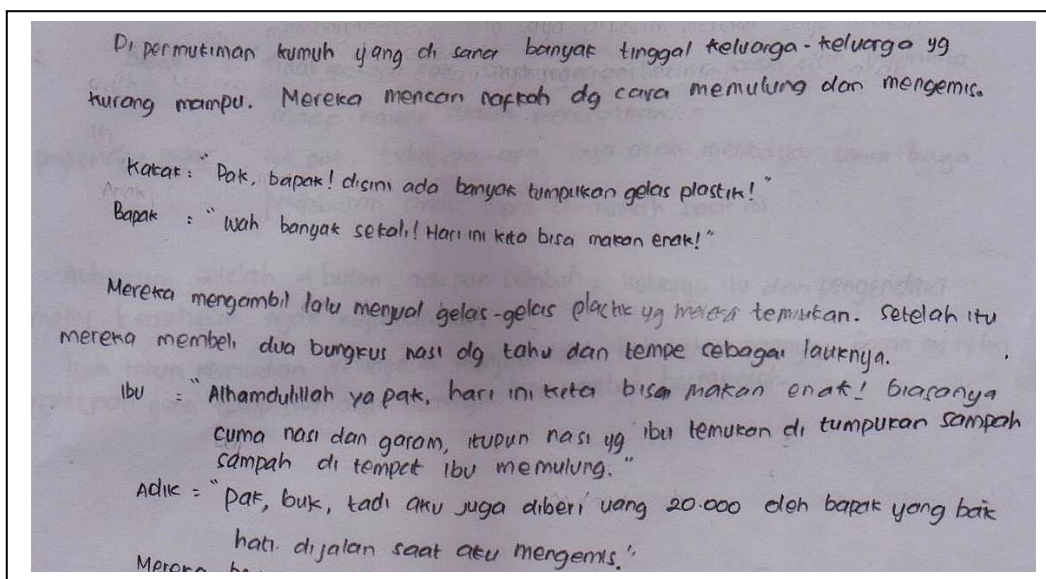 Di permukiman kumuh yang di sana banyak tinggal keluarga-keluarga yg
kurang mampu. Mereka mencari nafkah dg cara memulung dan mengemis.
Kakak : "Pak, bapak! disini ada banyak tumpukan gelas plastik!"
Bapak : "Wah banyak sekali! Hari ini kita bisa makan enak!"
Mereka mengambil lalu menjual gelas-gelas plastik yg mereka temukan. Setelah itu
mereka membeli dua bungkus nasi dg tahu dan tempe sebagai lauknya.
Ibu : "Alhamdulillah ya pak, hari ini kita bisa makan enak! biasanya
cuma nasi dan garam, itupun nasi yg ibu temukan di tumpukan sampah
sampah di tempat ibu memulung."
Adik : "pak, buk, tadi aku juga diberi uang 20.000 oleh bapak yang baik
hati. dijalan saat aku mengemis."
Mereka